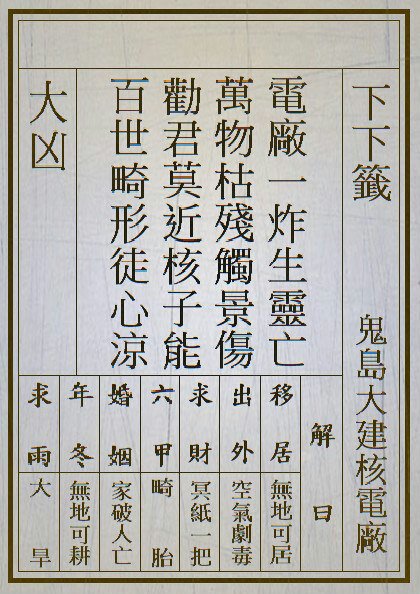 下下籤
鬼島大建核電廠
電廠一炸生靈亡
萬物枯殘觸景傷
勸君莫近核子能
百世畸形徒心涼
大凶
解曰
移居
無地可居
出外
空氣劇毒
求財
冥紙一把
六甲
畸胎
婚姻
家破人亡
年冬
無地可耕
求雨
大旱